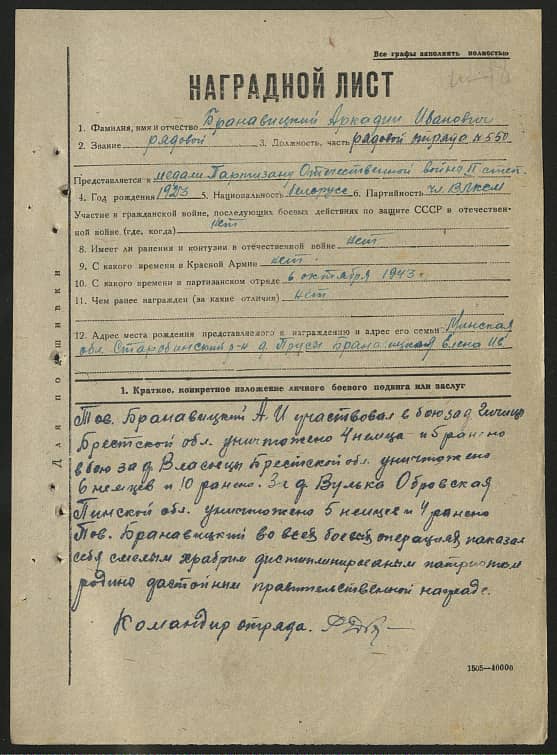 Все графы заполнять полностью
НАГРАДНОЙ ЛИСТ
1. Фамилия, имя и отчество Бранавицкий Аркадий Иванович
2. Звание рядовой 3. Должность, часть рядовой отряда №550
Представляется к медали Партизану Отечественной война II степ.
4. Год рождения 1923 5. Национальность белорусс 6. Партийность чл. ВЛКСМ
Участие в гражданской войне, последующих боевых действиях по защите СССР и отечествен-
ной войне (где, когда) нет
8. Имеет ли ранения и контузии в отечественной войне нет
9. С какого времени в Красной Армии нет.
10. С какого времени в партизанском отряде 6 октября 1943.
11. Чем ранее награжден (за какие отличия) нет
12. Адрес места рождения представляемого к награждению и адрес его семьи Минская
обл. Старобинский р-н д. Бранавицкая Елена
Для подшивки
1. Краткое, конкретное изложение личного боевого подвига или заслуг
Тов. Бранавицкий А. И участвовал в бою за д
Брестской обл. уничтожено 4 немца и 5 ранено
в бою за д Брестской обл. уничтожено
6 немцев и 10 ранено. За д Вулька Обровская
Пинской обл. уничтожено 5 немцев и 4 ранено
Тов. Бранавицкий во всех боевых операциях показал
себя смелым храбрим патриотом
родино достойним правительственной награде.
Командир отряда.
1505—40000